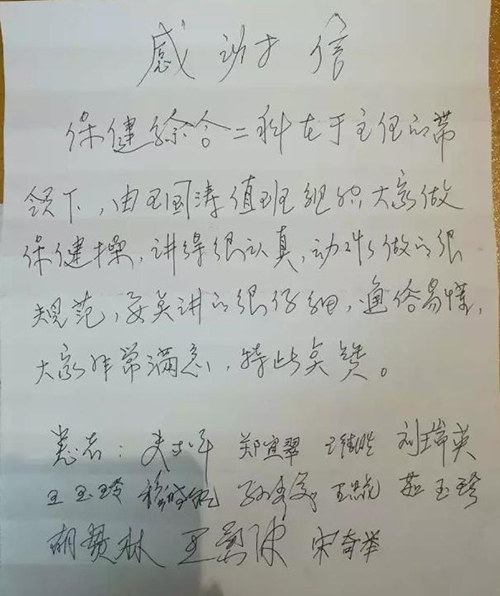 感动才信
保健综合二科在于主任的带
领下，由王国涛值班组织大家做
保健操，讲得很认真，动作做的很
规范，要英讲的很仔细，通俗易懂，
大家非常满意，特此点赞。
患者：郑宜翠 刘瑞英
王玉玲 茹玉玲
胡赞林 宋奇举